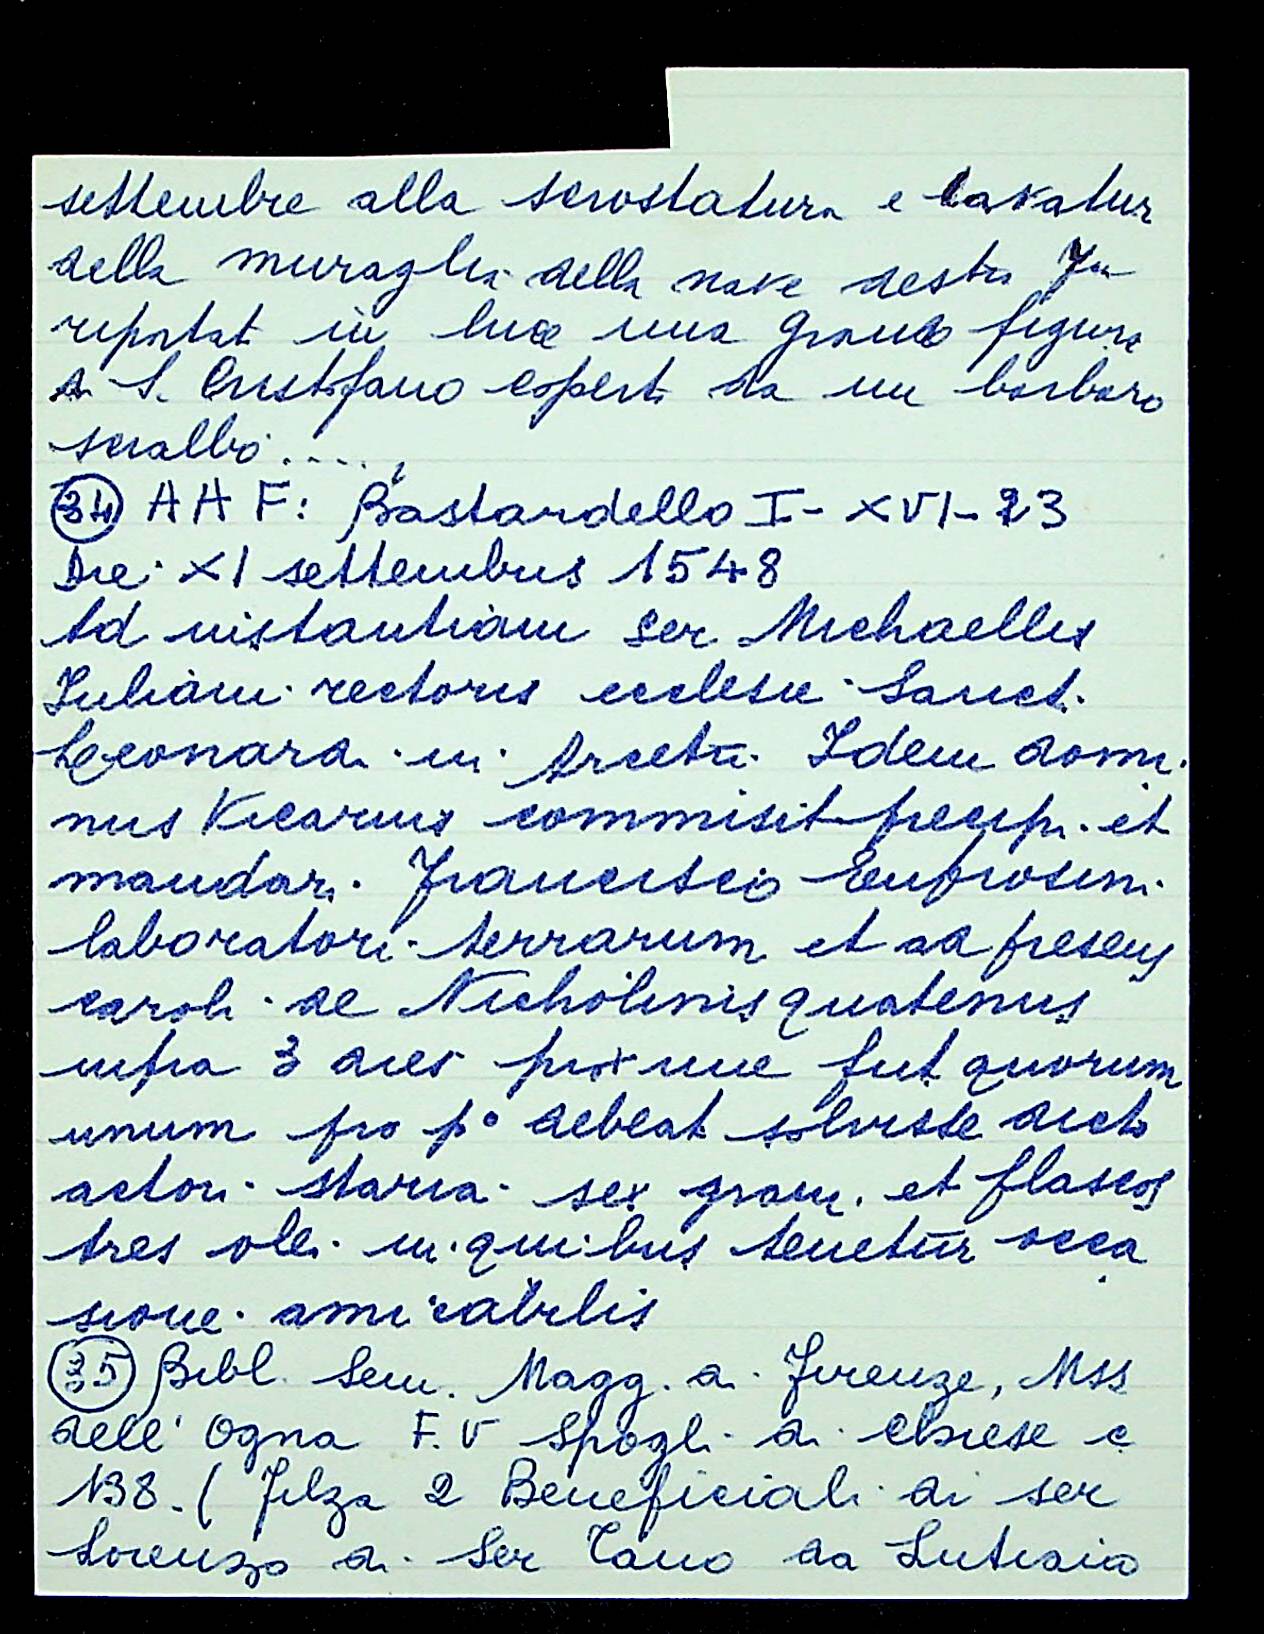 settembre alla scrostatura e lavatur
della muraglia della nave destra fu
riportata in luce una grande figura
di S. Cristofano coperta da un barbaro
scialbo.....
34 A A F: Bastardello I - XVI - 23
Die XI settembris 1548
Ad instantiam ser Michaellis
Iuliani rectoris ecclesie Sancti
Leonardi in Arcetri. Idem domi
nus Vicarius commisit precipi et
mandari Francisco Eufrosini
laboratori terrarum et ad presens
caroli de Nicholinis quatenus
infra 3 dies proxime fut quorum
unum pro p° debeat solvisse dicto
actori staria sex grani et flascos
tres olei in quibus tenetur occa
sione amicabilis
35 Bibl. Sem. Magg. di Firenze, Mss
dell' Ogna F. V Spogli di chiese c
138. ( Filza 2 Beneficiali di ser
Lorenzo di Ser Tano da Lutiano